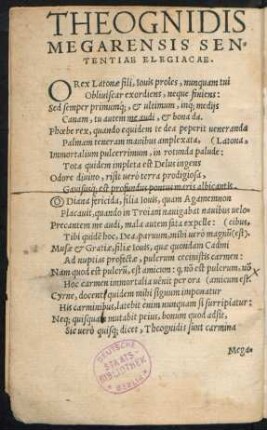 THEOGNIDIS
MEGARENSIS SEN-
TENTIAE ELEGIACAE.
O Rex Latonæ fili, Iouis proles, nunquam tui
Obliuiscar exordiens, neque finiens:
Sed semper primumq;, & ultimum, inq; medijs
Canam, tu autem me audi, & bona da.
Phœbe rex, quando equidem te dea peperit ueneranda
Palmam teneram manibus amplexata, (Latona
Immortalium pulcerrimum, in rotunda palude:
Tota quidem impleta est Delus ingens
Odore diuino, risit uero terra prodigiosa,
Gauisusq; est profundus pontus maris albicantis.
O Diana fericida, filia Iouis, quam Agamemnon
Placauit, quando in Troiam nauigabat nauibus uelo-
Precantem me audi, mala autem fata expelle: (cibus:
Tibi quidē hoc, Dea, paruum, mihi uerò magnū(est).
Musæ & Gratiæ filiæ Iouis, quæ quondam Cadmi
Ad nuptias profectæ, pulcrum cecinistis carmen:
Nam quod est pulcrū, est amicum: q. nō est pulcrum, nō
Hoc carmen immortalia uēnit per ora (amicum est.
Cyrne, docenti quidem mihi signum imponatur
His carminibus, latebit enim nunquam si surripiatur:
Neq; quisquam mutabit peius, bonum quod adsit,
Sic uerò quisq; dicet, Theognidis sunt carmina
Mega-
DEUTSCHE
STAATS-
BIBLIOTHEK
BERLIN